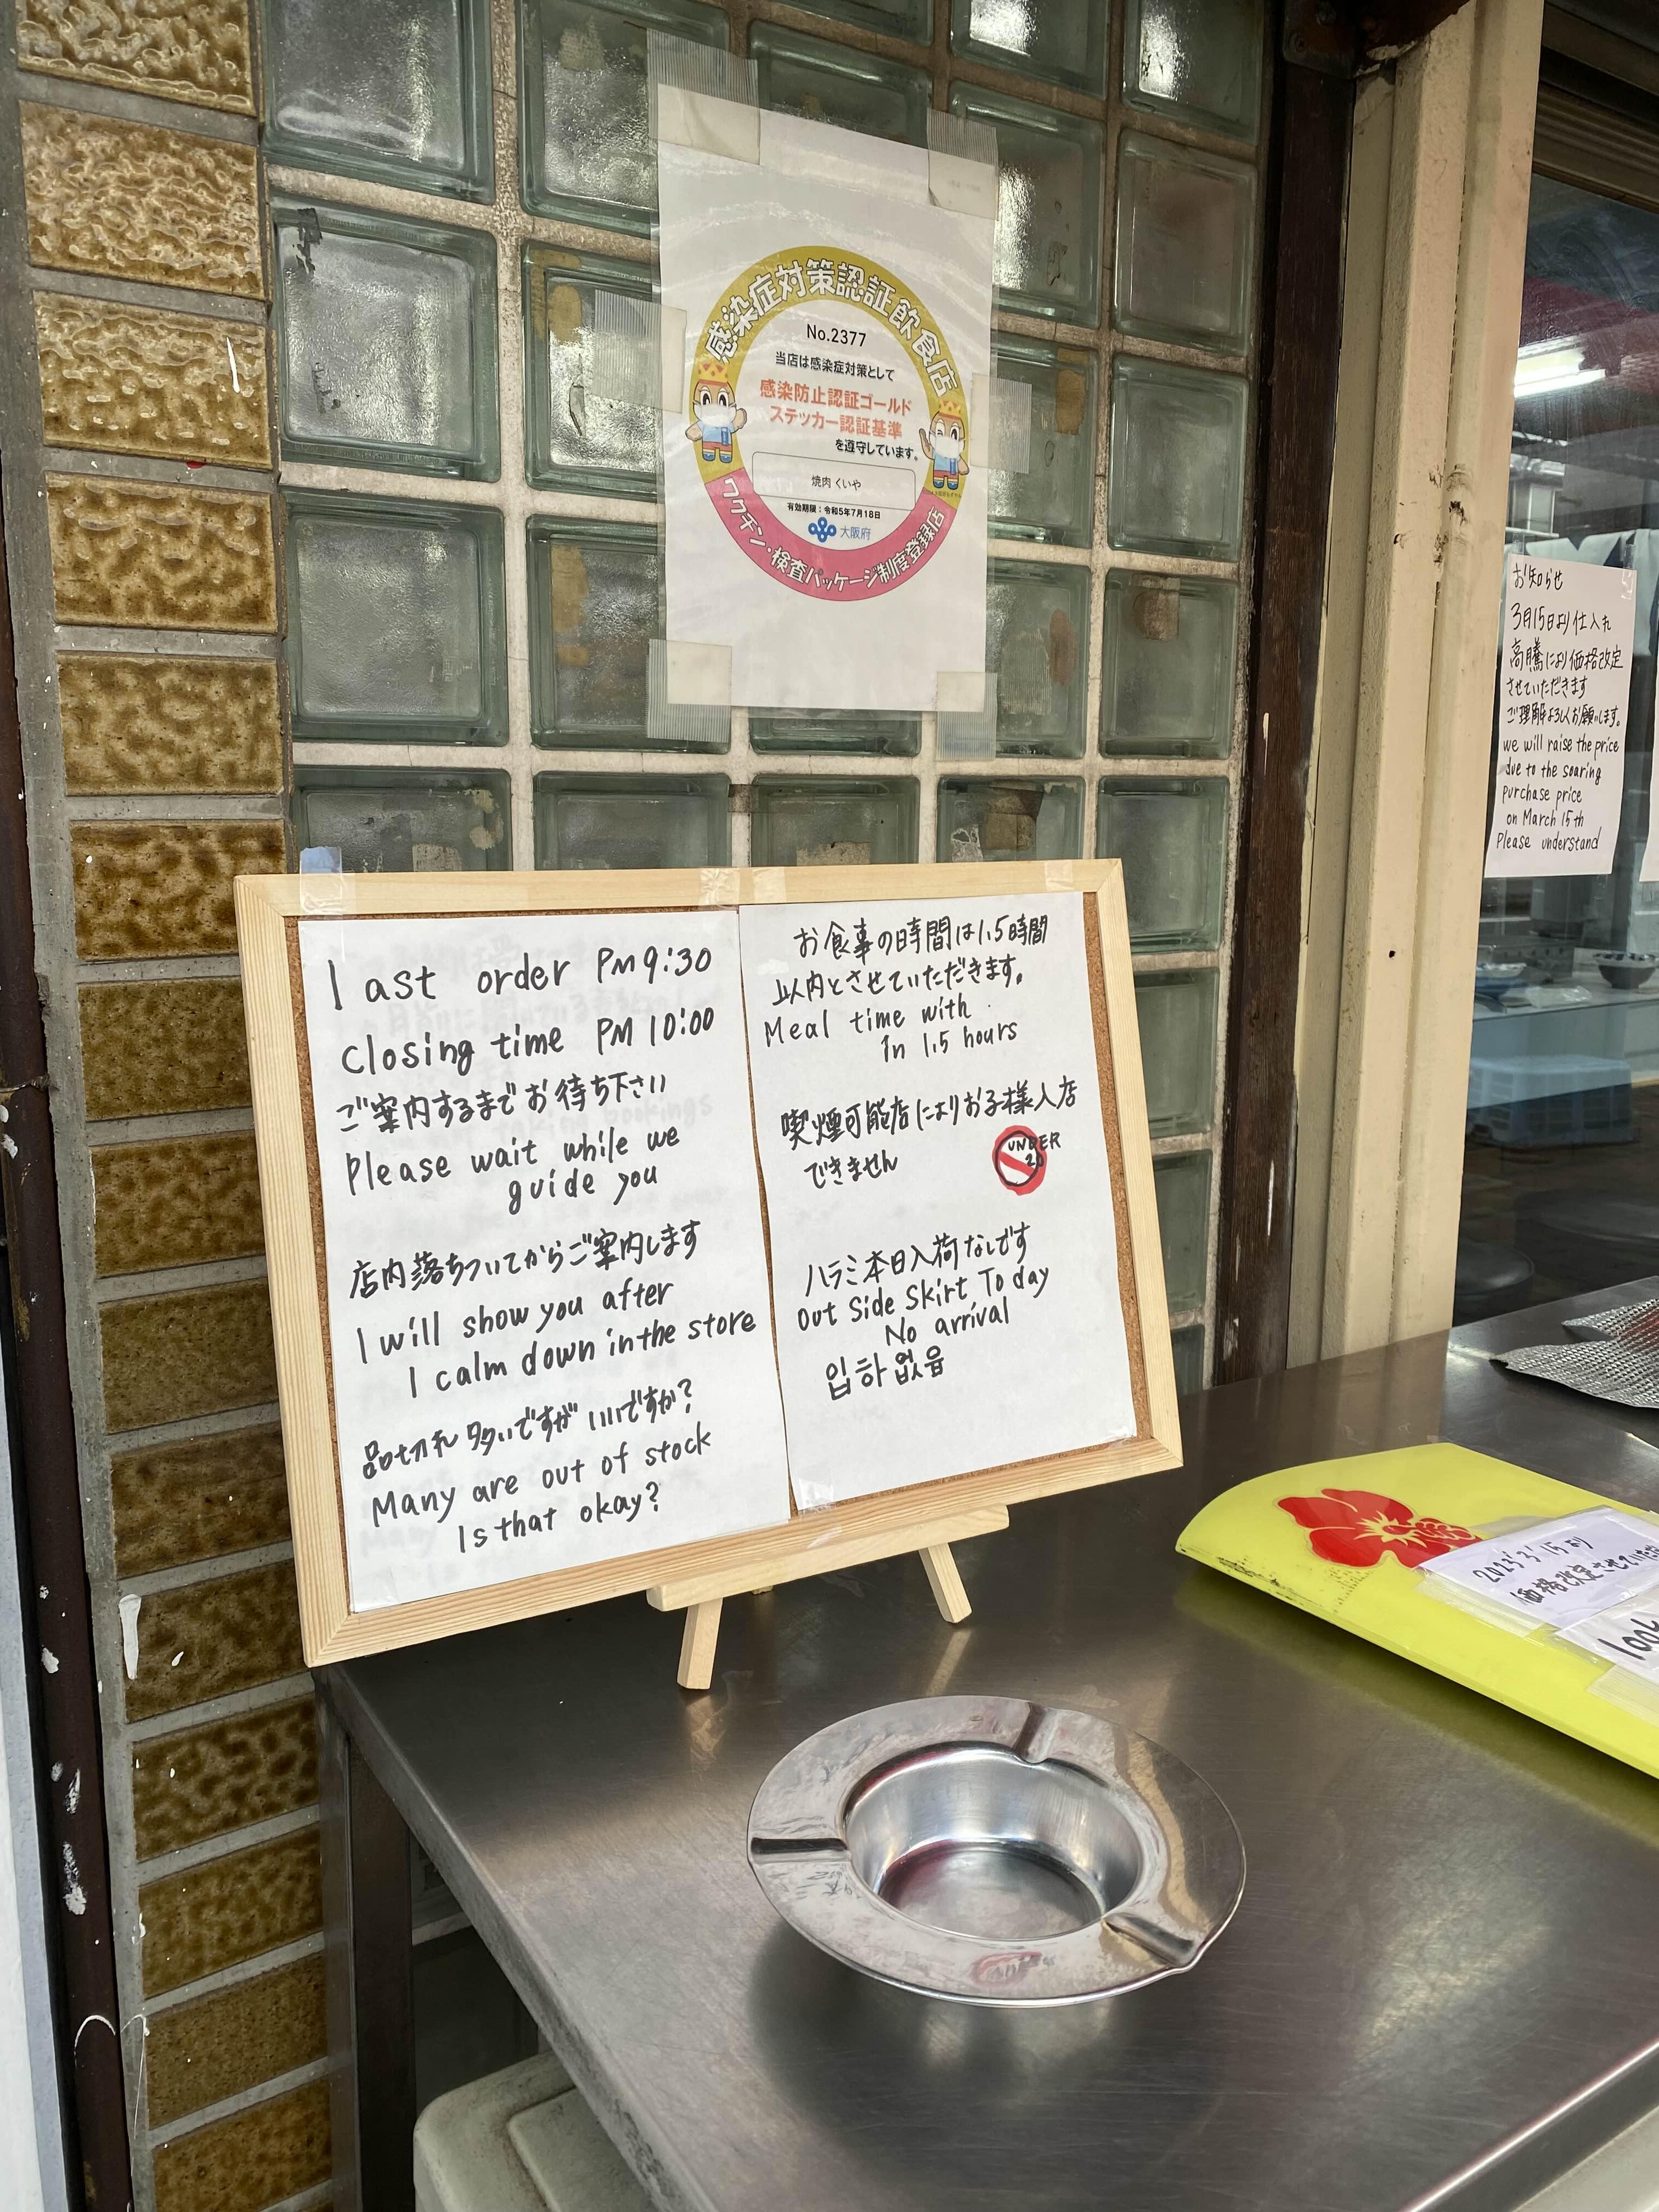 感染症対策認証飲食店
No.2377
当店は感染症対策として
感染防止認証ゴールド
ステッカー認証基準
を遵守しています。
焼肉 くいや
有効期限：令和5年7月18日
大阪府
ワクチン・検査パッケージ制度登録店
last order PM 9:30
closing time PM 10:00
ご案内するまでお待ち下さい
Please wait while we
guide you
店内落ちついてからご案内します
I will show you after
I calm down in the store
品切れ多いですがいいですか?
Many are out of stock
Is that okay?
お食事の時間は1.5時間
以内とさせていただきます。
Meal time with
in 1.5 hours
喫煙可能店によりお子様入店
できません
UNDER
20
ハラミ本日入荷なしです
Out Side Skirt To day
No arrival
입하 없음
お知らせ
3月15日より仕入れ
高騰により価格改定
させていただきます
ご理解よろしくお願いします。
we will raise the price
due to the soaring
purchase price
on March 15th
Please understand
2023/3/15より
価格改定させていただ